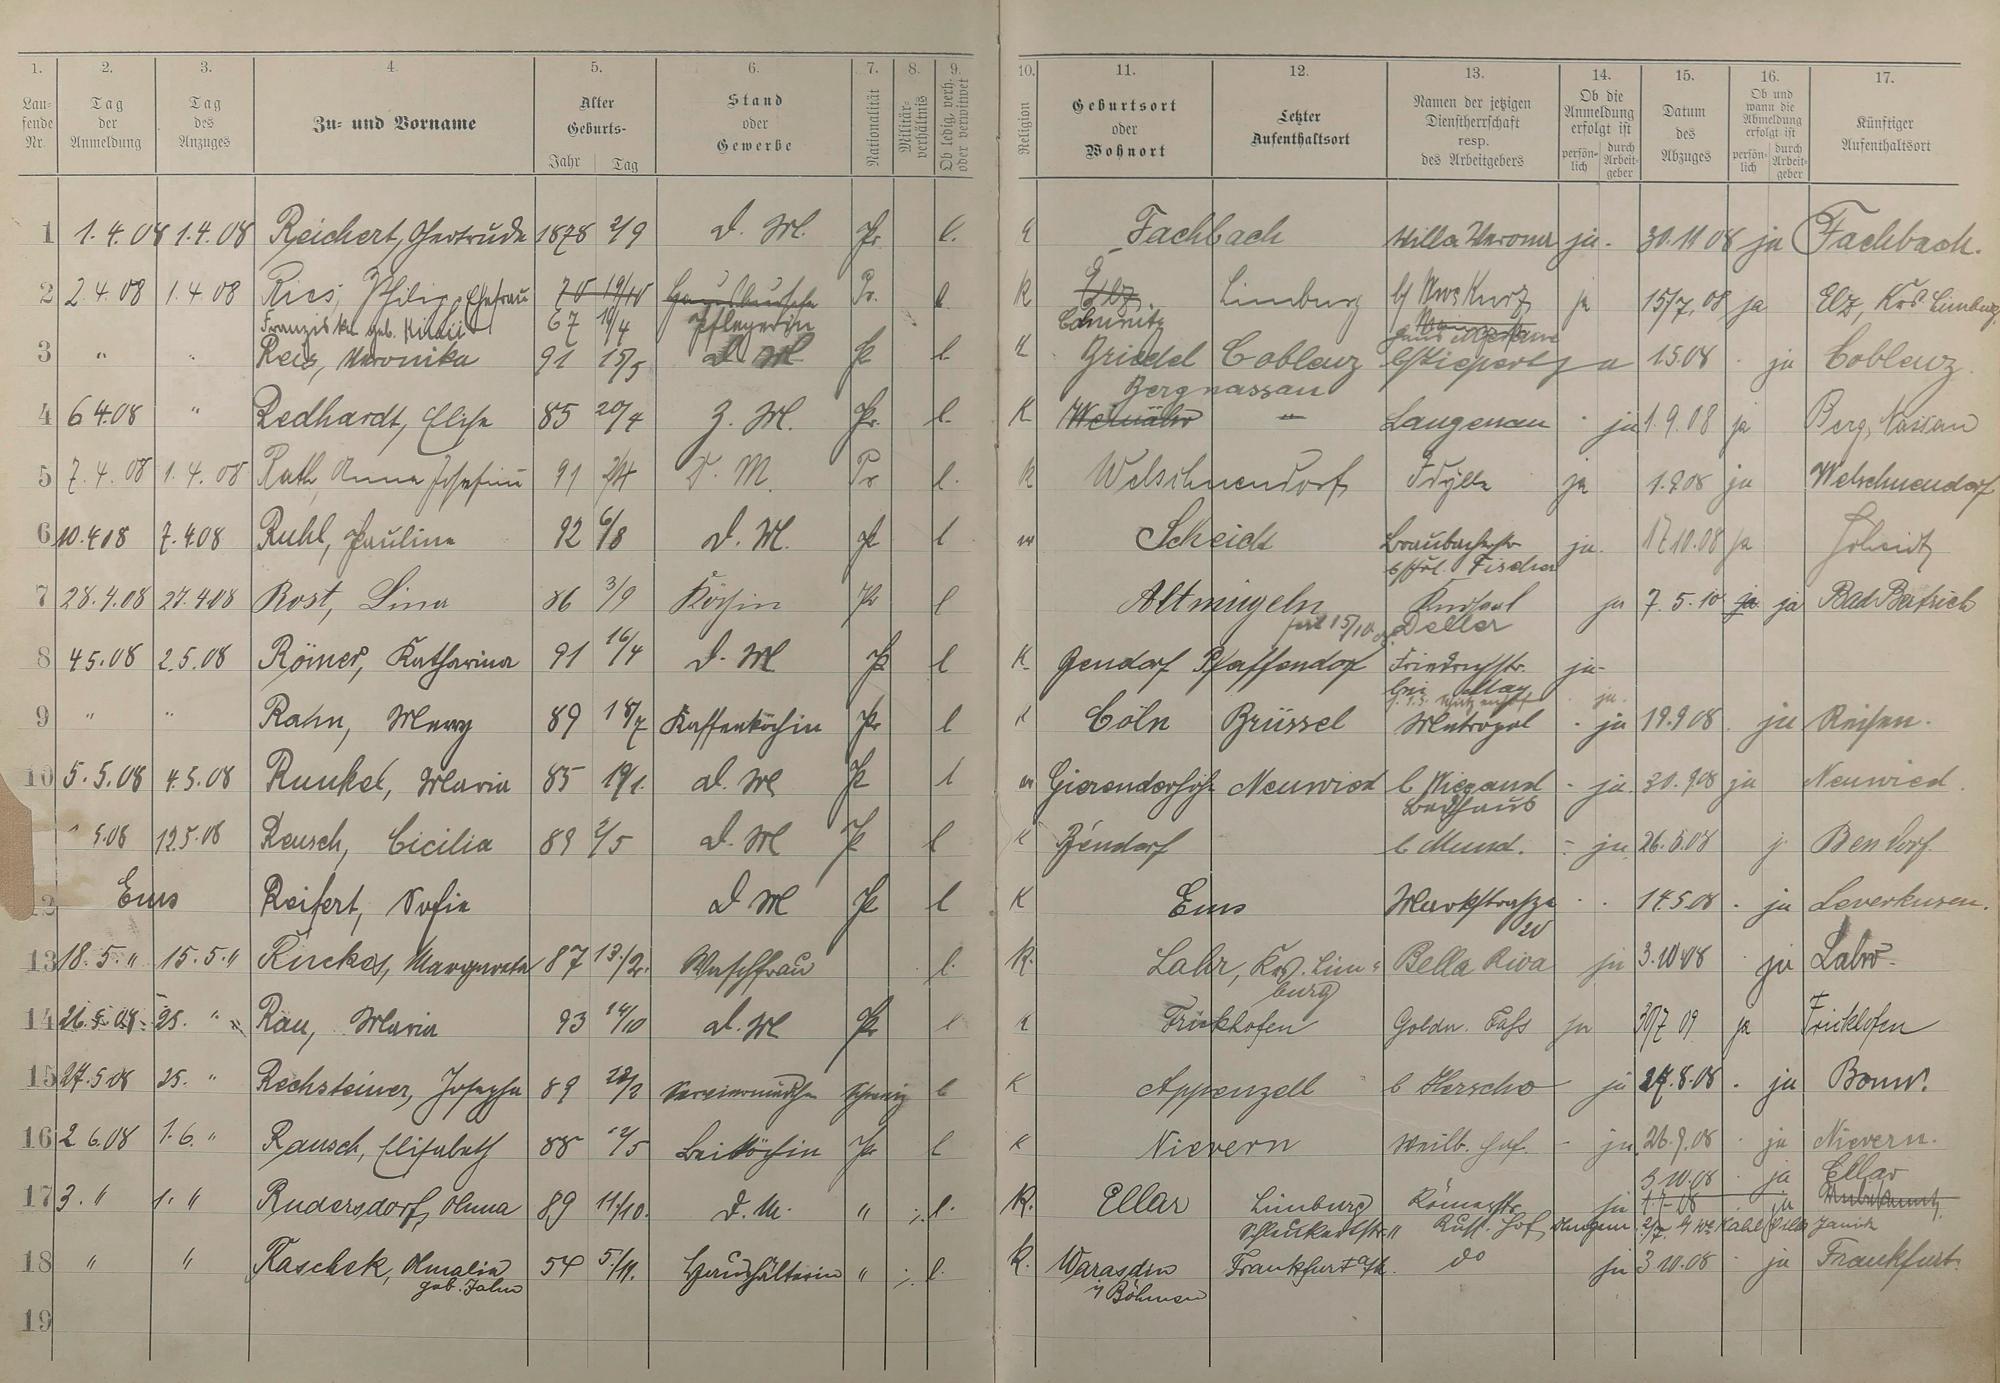 1. 2. 3. 4. 5. 6. 7. 8. 9. 10. 11. 12. 13. 14. 15. 16. 17.
Lau-fende Nr. Tag der Anmeldung Tag des Anzuges Zu- und Vorname Alter Geburts- Jahr Tag Stand oder Gewerbe Nationalität Militär-verhältnis Ob ledig, verh. oder verwitwet Religion Geburtsort oder Wohnort Letzter Aufenthaltsort Namen der jetzigen Dienstherrschaft resp. des Arbeitgebers Ob die Anmeldung erfolgt ist persön-lich durch Arbeit-geber Datum des Abzuges Ob und wann die Abmeldung erfolgt ist persön-lich durch Arbeit-geber Künftiger Aufenthaltsort
1 1.4.08 1.4.08 Reichert, Gertrude 1878 2/9 D. M. Pr. l. Fachbach Villa Verona ja. 30.11 08 ja Fachbach.
2 2.4.08 1.4.08 Ries, Philip, Ehefrau 70 19/10 Hausbursche Pr. l K Elz Limburg ja 15/7.08 ja Elz, Krs Limburg
Franziska geb. 67 11/4 Pflegerin
3 " " Reis, Veronika 91 15/5 D. M. Pr l. K Griedel Coblenz ja 1508 . ja Coblenz.
Bergnassau
4 6 4.08 " Redhardt, Elise 85 20/4 Z. M. Pr. l. K Weinähr " Langenau . ja 1.9.08 ja Berg, Nassau
5 7.4.08 1.4.08 Rath, Anna Josefine 91 D. M. Pr l. K Welschneudorf Idylle ja 1.9.08 ja Welschneudorf
6 10.4.08 7.4.08 Ruhl, Pauline 92 6/8 D. M. Pr l Scheidt Braubacherstr ja. 17.10.08 ja Scheidt
b/Frl. Fischer
7 28.4.08 27.4.08 Rost, Lina 86 3/9 Köchin Pr l Altmügeln Kursaal ja 7.5.10 ja ja Bad Bertrich
Deller
8 4 5.08 2.5.08 Römer, Katharina 91 16/4 D. M Pr l K Gendorf Pfaffendorf Friedrichstr. ja
bei May
9 " " Rahn, Mary 89 18/7 Kaffeeköchin Pr l K Cöln Brüssel Metropol . ja 19.9 08 . ja Reisen.
10 5.5.08 4.5.08 Runkel, Maria 85 19/1. D. M Pr l Gierenderhöhe Neuwied b Wiegand - ja. 31.9.08 ja Neuwied.
Badhaus
" 5.08 12.5.08 Reusch, Cicilia 89 2/5 D. M Pr l K Bendorf b Mund. - ja 26.5.08 j. Bendorf
12 Ems Reifert, Sofie D M Pr l K Ems Markstrasze . . 14.5.08 . ja Leverkusen.
13 18.5." 15.5." Ruckes, Margareta 87 13./2. Waschfrau l. K. Lahr, Krs. Lim= Bella Riva ja 3.10 08 . ja Lahr.
burg
14 26.5.08. 25. " Rau, Maria 93 14/10 D. M Pr. l K Frickhofen Goldn. Fass ja 30/7 09 ja Frickhofen
15 27.5 08 25. " Rechsteiner, Josepha 89 28/2 Serviermädchen Schweiz l K Appenzell b Herscho ja 27.8.08 . ja Bonn.
16 2 6.08 1.6. " Rausch, Elisabeth 88 12/5 Beiköchin Pr l K Nievern Weilb. Hof. - ja 26.9.08 . ja Nievern.
3 10.08 . ja Ellar
17 3. " 1. " Rudersdorf, Anna 89 11/10. D. M. " ./. l. K. Ellar Limburg Römerstr. ja 1.7.08 ja Unbekannt
Russ. Hof
18 " " Raschek, Amalie 54 5./11. Haushälterin " ./. l. K. Warasden Frankfurt a/M. do ja 3 10.08 . ja Frankfurt.
geb. Jahn i/ Böhmen
19